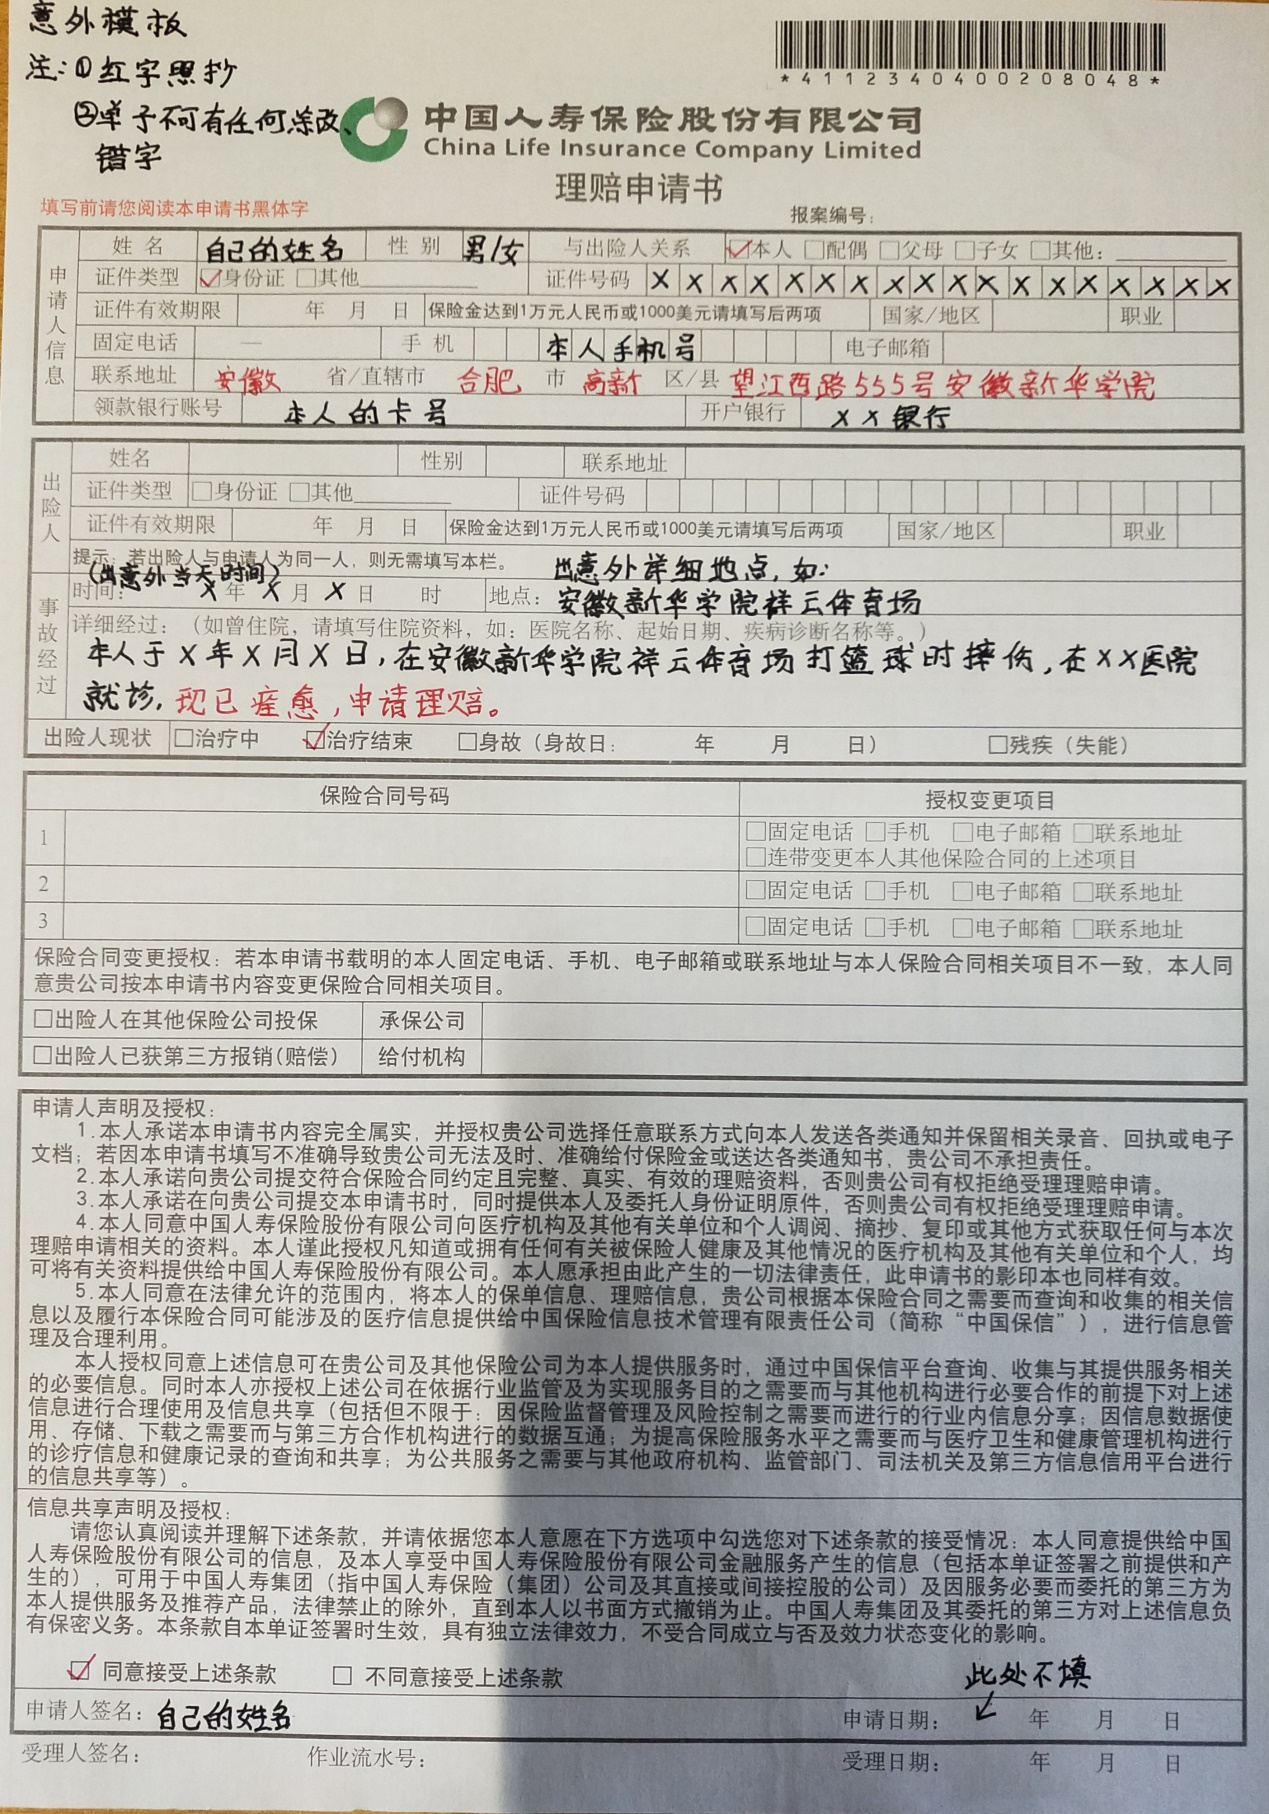 意外模板
注:①红字照抄
②单子不可有任何涂改、
错字
*4112340400208048*
中国人寿保险股份有限公司
China Life Insurance Company Limited
理赔申请书
填写前请您阅读本申请书黑体字
报案编号:
申请人信息
姓名 自己的姓名 性别 男/女 与出险人关系 ☑本人 □配偶 □父母 □子女 □其他:
证件类型 ☑身份证 □其他 证件号码 X X X X X X X X X X X X X X X X X X
证件有效期限 年 月 日 保险金达到1万元人民币或1000美元请填写后两项 国家/地区 职业
固定电话 — 手机 本人手机号 电子邮箱
联系地址 安徽 省/直辖市 合肥 市 高新 区/县 望江西路555号安徽新华学院
领款银行账号 本人的卡号 开户银行 XX银行
出险人
姓名 性别 联系地址
证件类型 □身份证 □其他 证件号码
证件有效期限 年 月 日 保险金达到1万元人民币或1000美元请填写后两项 国家/地区 职业
提示:若出险人与申请人为同一人,则无需填写本栏。
事故经过
(出意外当天时间) 出意外详细地点,如:
时间: X 年 X 月 X 日 时 地点: 安徽新华学院祥云体育场
详细经过:(如曾住院,请填写住院资料,如:医院名称、起始日期、疾病诊断名称等。)
本人于X年X月X日,在安徽新华学院祥云体育场打篮球时摔伤,在XX医院
就诊,现已痊愈,申请理赔。
出险人现状 □治疗中 ☑治疗结束 □身故(身故日: 年 月 日) □残疾(失能)
保险合同号码 授权变更项目
1 □固定电话 □手机 □电子邮箱 □联系地址
□连带变更本人其他保险合同的上述项目
2 □固定电话 □手机 □电子邮箱 □联系地址
3 □固定电话 □手机 □电子邮箱 □联系地址
保险合同变更授权:若本申请书载明的本人固定电话、手机、电子邮箱或联系地址与本人保险合同相关项目不一致,本人同
意贵公司按本申请书内容变更保险合同相关项目。
□出险人在其他保险公司投保 承保公司
□出险人已获第三方报销(赔偿) 给付机构
申请人声明及授权:
1.本人承诺本申请书内容完全属实,并授权贵公司选择任意联系方式向本人发送各类通知并保留相关录音、回执或电子
文档;若因本申请书填写不准确导致贵公司无法及时、准确给付保险金或送达各类通知书,贵公司不承担责任。
2.本人承诺向贵公司提交符合保险合同约定且完整、真实、有效的理赔资料,否则贵公司有权拒绝受理理赔申请。
3.本人承诺在向贵公司提交本申请书时,同时提供本人及委托人身份证明原件,否则贵公司有权拒绝受理理赔申请。
4.本人同意中国人寿保险股份有限公司向医疗机构及其他有关单位和个人调阅、摘抄、复印或其他方式获取任何与本次
理赔申请相关的资料。本人谨此授权凡知道或拥有任何有关被保险人健康及其他情况的医疗机构及其他有关单位和个人,均
可将有关资料提供给中国人寿保险股份有限公司。本人愿承担由此产生的一切法律责任,此申请书的影印本也同样有效。
5.本人同意在法律允许的范围内,将本人的保单信息、理赔信息,贵公司根据本保险合同之需要而查询和收集的相关信
息以及履行本保险合同可能涉及的医疗信息提供给中国保险信息技术管理有限责任公司(简称“中国保信”),进行信息管
理及合理利用。
本人授权同意上述信息可在贵公司及其他保险公司为本人提供服务时,通过中国保信平台查询、收集与其提供服务相关
的必要信息。同时本人亦授权上述公司在依据行业监管及为实现服务目的之需要而与其他机构进行必要合作的前提下对上述
信息进行合理使用及信息共享(包括但不限于:因保险监督管理及风险控制之需要而进行的行业内信息分享;因信息数据使
用、存储、下载之需要而与第三方合作机构进行的数据互通;为提高保险服务水平之需要而与医疗卫生和健康管理机构进行
的诊疗信息和健康记录的查询和共享;为公共服务之需要与其他政府机构、监管部门、司法机关及第三方信息信用平台进行
的信息共享等)。
信息共享声明及授权:
请您认真阅读并理解下述条款,并请依据您本人意愿在下方选项中勾选您对下述条款的接受情况:本人同意提供给中国
人寿保险股份有限公司的信息,及本人享受中国人寿保险股份有限公司金融服务产生的信息(包括本单证签署之前提供和产
生的),可用于中国人寿集团(指中国人寿保险(集团)公司及其直接或间接控股的公司)及因服务必要而委托的第三方为
本人提供服务及推荐产品,法律禁止的除外,直到本人以书面方式撤销为止。中国人寿集团及其委托的第三方对上述信息负
有保密义务。本条款自本单证签署时生效,具有独立法律效力,不受合同成立与否及效力状态变化的影响。
☑ 同意接受上述条款 □ 不同意接受上述条款 此处不填
申请人签名: 自己的姓名 申请日期: 年 月 日
受理人签名: 作业流水号: 受理日期: 年 月 日